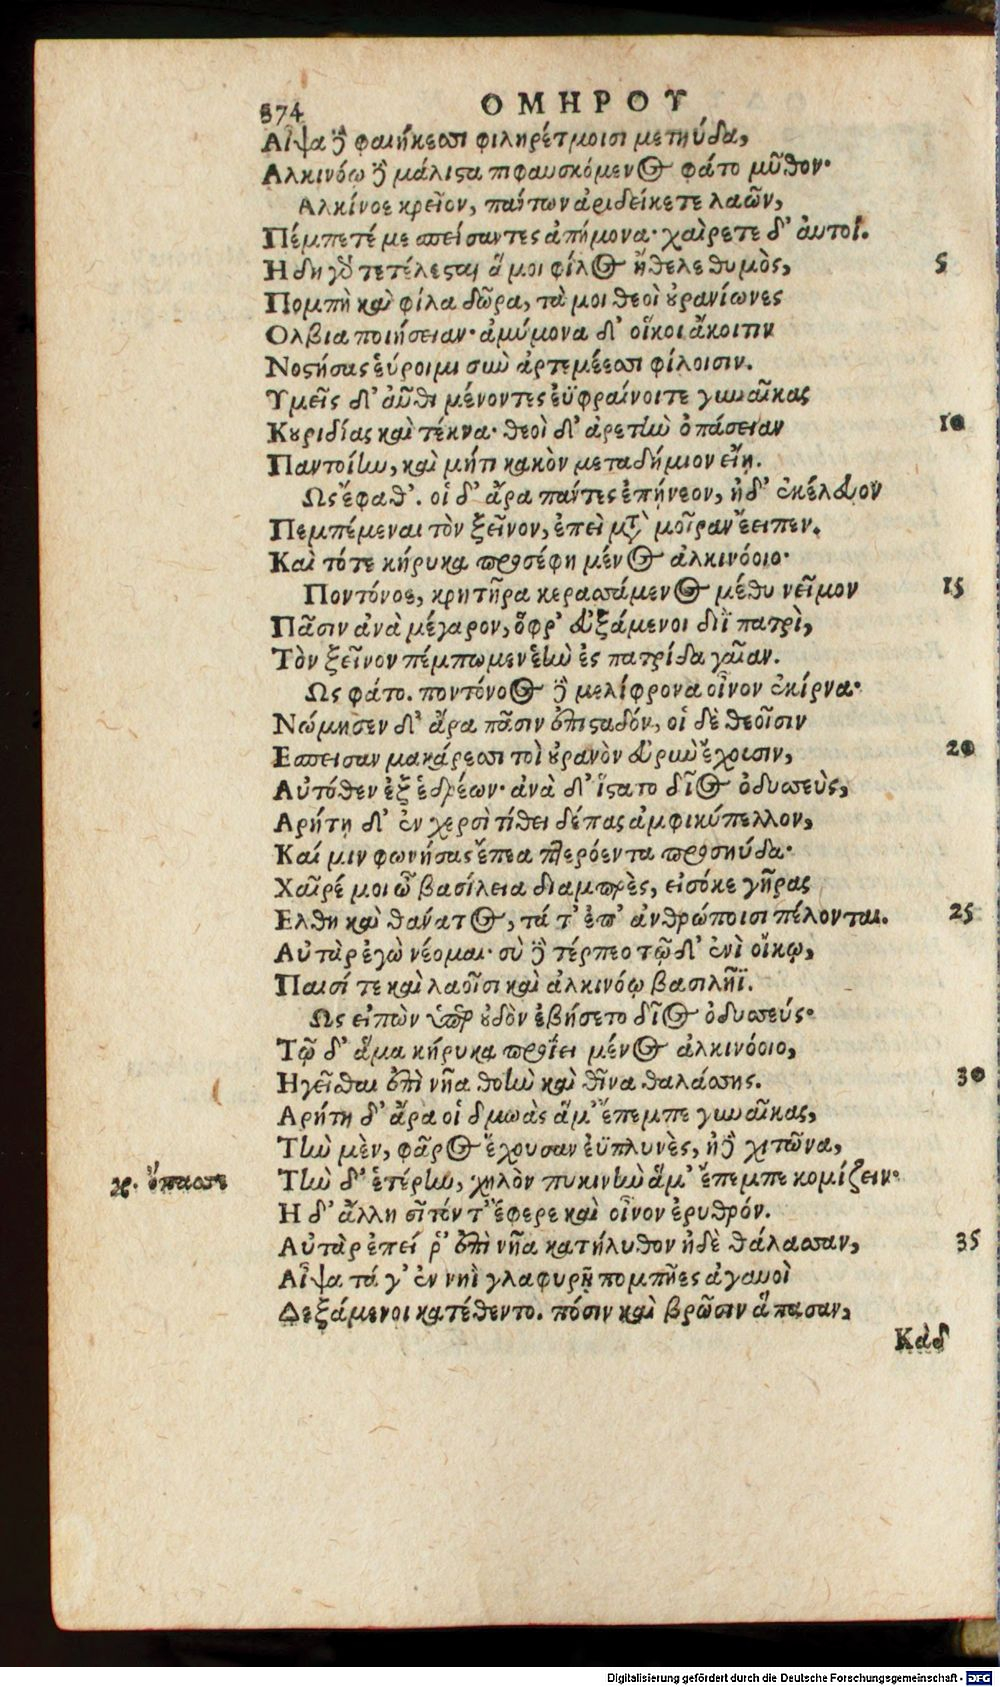 374
ΟΜΗΡΟΥ
Αἶψα δὲ φαιήκεσσι φιληρέτμοισι μετηύδα,
Αλκινόῳ δὲ μάλιστα πιφαυσκόμενος φάτο μῦθον·
Αλκίνοε κρεῖον, πάντων ἀριδείκετε λαῶν,
Πέμπετέ με σπείσαντες ἀπήμονα· χαίρετε δ' ἀυτοί.
Ηδη γὰρ τετέλεσται ἅ μοι φίλος ἤθελε θυμὸς, 5
Πομπὴ καὶ φίλα δῶρα, τά μοι θεοὶ οὐρανίωνες
Ολβια ποιήσειαν· ἀμύμονα δ' οἴκοι ἄκοιτιν
Νοστήσας εὕροιμι σὺν ἀρτεμέεσσι φίλοισιν.
Υμεῖς δ' αὖθι μένοντες ἐϋφραίνοιτε γυναῖκας
Κουριδίας καὶ τέκνα· θεοὶ δ' ἀρετὴν ὀπάσειαν 10
Παντοίην, καὶ μήτι κακὸν μεταδήμιον εἴη.
Ως ἔφαθ'. οἱ δ' ἄρα πάντες ἐπῄνεον, ἠδ' ἐκέλευον
Πεμπέμεναι τὸν ξεῖνον, ἐπεὶ μετὰ μοῖραν ἔειπεν.
Καὶ τότε κήρυκα προσέφη μένος ἀλκινόοιο·
Ποντόνοε, κρητῆρα κερασσάμενος μέθυ νεῖμον 15
Πᾶσιν ἀνὰ μέγαρον, ὄφρ' εὐξάμενοι διῒ πατρὶ,
Τὸν ξεῖνον πέμπωμεν ἑὴν ἐς πατρίδα γαῖαν.
Ως φάτο. ποντόνοος δὲ μελίφρονα οἶνον ἐκίρνα·
Νώμησεν δ' ἄρα πᾶσιν ἐπισταδόν, οἱ δὲ θεοῖσιν
Εσπεισαν μακάρεσσι τοὶ οὐρανὸν εὐρὺν ἔχουσιν, 20
Αὐτόθεν ἐξ ἑδρέων· ἀνὰ δ' ἵστατο δῖος ὀδυσσεὺς,
Αρήτῃ δ' ἐν χερσὶ τίθει δέπας ἀμφικύπελλον,
Καί μιν φωνήσας ἔπεα πτερόεντα προσηύδα·
Χαῖρέ μοι ὦ βασίλεια διαμπερὲς, εἰσόκε γῆρας
Ελθῃ καὶ θάνατος, τά τ' ἐπ' ἀνθρώποισι πέλονται. 25
Αὐτὰρ ἐγὼ νέομαι· σὺ δὲ τέρπεο τῷδ' ἐνὶ οἴκῳ,
Παισί τε καὶ λαοῖσι καὶ ἀλκινόῳ βασιλῆϊ.
Ως εἰπὼν ὑπὲρ οὐδὸν ἐβήσετο δῖος ὀδυσσεύς·
Τῷ δ' ἅμα κήρυκα προΐει μένος ἀλκινόοιο,
Ηγεῖσθαι ἐπὶ νῆα θοὴν καὶ θῖνα θαλάσσης. 30
Αρήτη δ' ἄρα οἱ δμωὰς ἅμ' ἔπεμπε γυναῖκας,
Τὴν μὲν, φᾶρος ἔχουσαν ἐϋπλυνὲς, ἠδὲ χιτῶνα,
γρ. ὄπασσε Τὴν δ' ἑτέρην, χηλὸν πυκινὴν ἅμ' ἔπεμπε κομίζειν·
Η δ' ἄλλη σῖτόν τ' ἔφερε καὶ οἶνον ἐρυθρόν.
Αὐτὰρ ἐπεί ῥ' ἐπὶ νῆα κατήλυθον ἠδὲ θάλασσαν, 35
Αἶψα τά γ' ἐν νηῒ γλαφυρῇ πομπῆες ἀγαυοὶ
Δεξάμενοι κατέθεντο. πόσιν καὶ βρῶσιν ἅπασαν,
Κὰδ
Digitalisierung gefördert durch die Deutsche Forschungsgemeinschaft - DFG